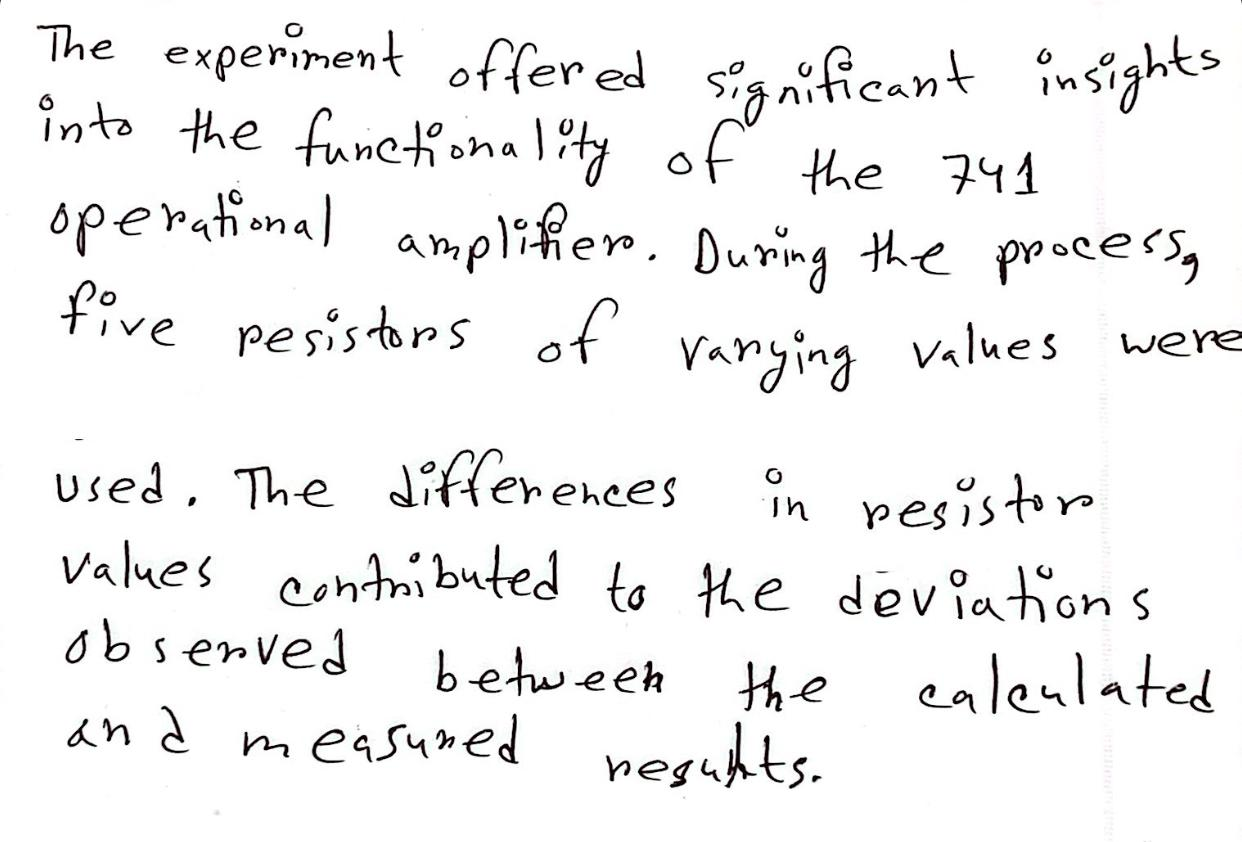 The experiment offered significant insights
into the functionality of the 741
operational amplifier. During the process,
five resistors of varying values were
used. The differences in resistor
values contributed to the deviations
observed between the calculated
and measured results.